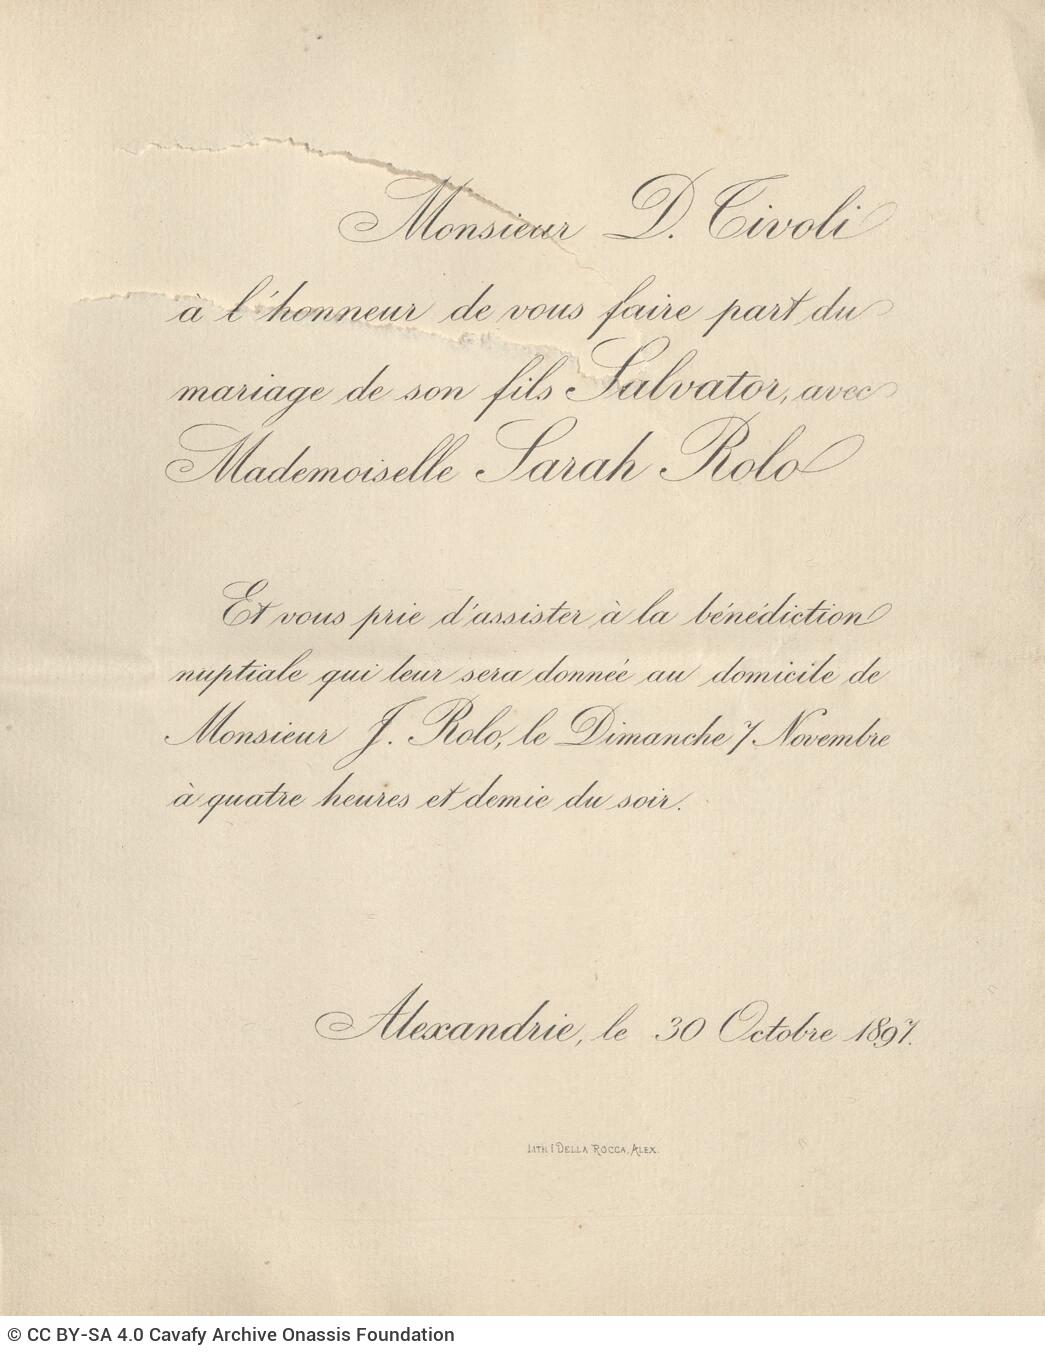 Monsieur D. Tivoli
à l'honneur de vous faire part du
mariage de son fils Salvator, avec
Mademoiselle Sarah Rolo
Et vous prie d'assister à la bénédiction
nuptiale qui leur sera donnée au domicile de
Monsieur J. Rolo, le Dimanche 7 Novembre
à quatre heures et demie du soir.
Alexandrie, le 30 Octobre 1897.
LITH I DELLA ROCCA, ALEX.
© CC BY-SA 4.0 Cavafy Archive Onassis Foundation